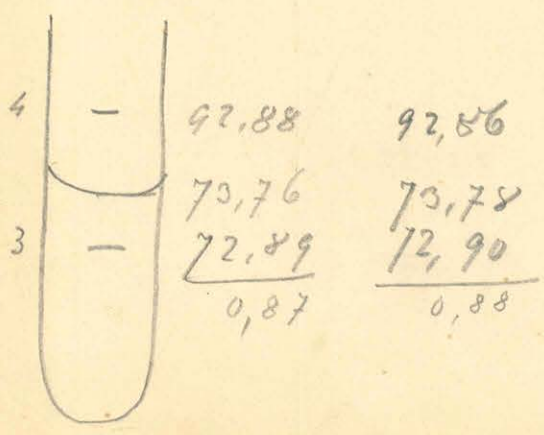 4 — 92,88 92,86
73,76 73,78
3 — 72,89 72,90
0,87 0,88